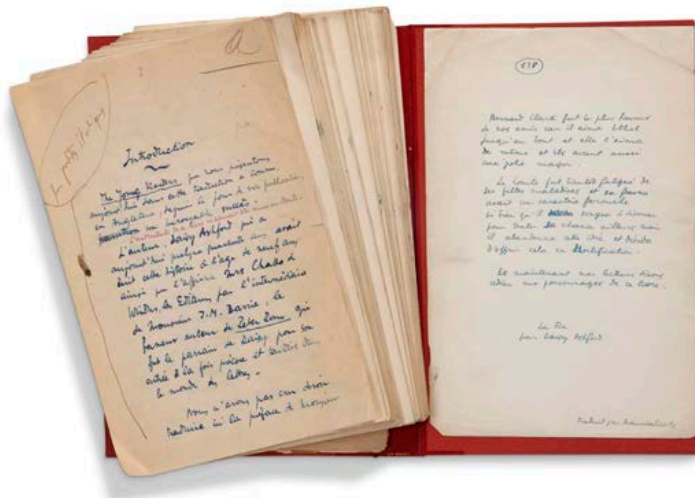 a
Introduction
The Young Visiters que nous présentons
aujourd'hui dans cette traduction a connu
en Angleterre, depuis le jour de sa publication,
un incroyable succès.
L'auteur, Daisy Ashford qui a
aujourd'hui quelque quarante ans avait
écrit cette histoire à l'âge de neuf ans
ainsi que l'affirme Mrs Chatto &
Windus, les Editeurs par l'intermédiaire
de Monsieur J.M. Barrie, le
fameux auteur de Peter Pan, qui
fut le parrain de Daisy pour son
entrée à la fois précoce et tardive dans
le monde des lettres.
Nous n'avons pas cru devoir
traduire ici la préface de Monsieur
138
Bernard Clark fut le plus heureux
de nos amis car il aima Ethel
jusqu'au bout et elle l'aima
de même et ils eurent aussi
une jolie maison.
Le Comte fut bientôt fatigué de
ses filles maladives et sa femme
avait un caractère
si bien qu'il divorcer
pour tenter sa chance ailleurs mais
il abandonna cette idée et décida
d'offrir cela en Mortification.
Et maintenant mes lecteurs disons
adieu aux personnages de ce livre.
La Fin
par Daisy Ashford
Traduit par